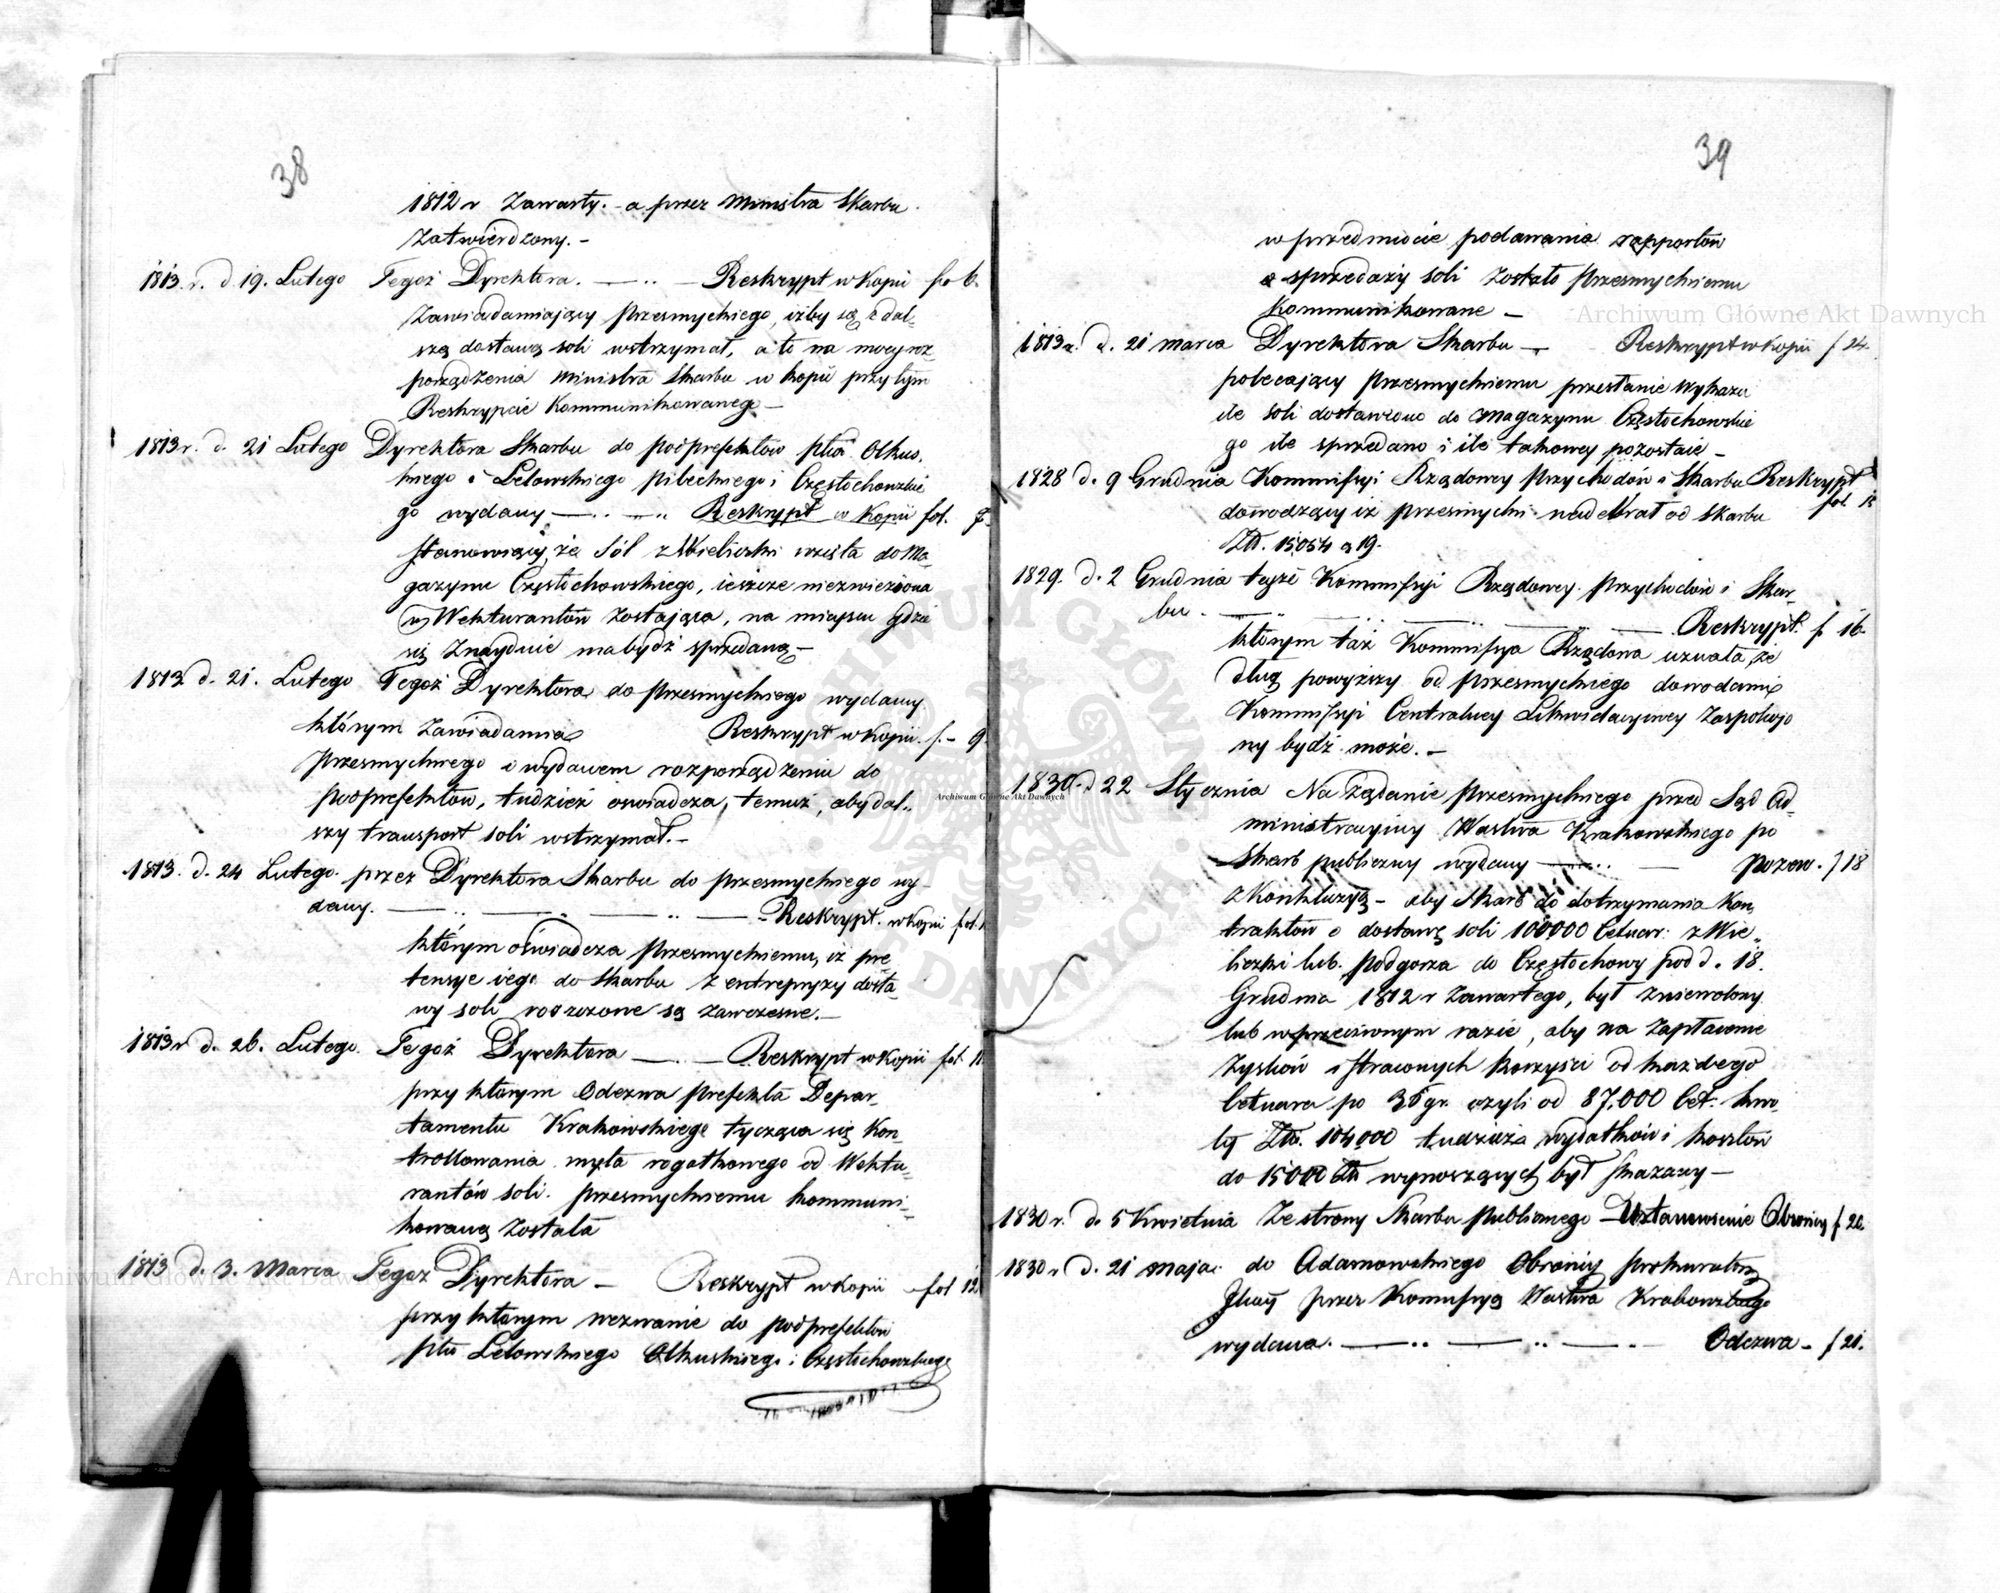 38
1812 r Zawarty. – a przez Ministra Skarbu
Zatwierdzony. –
1813. r. d 19. Lutego Tegoż Dyrektora. — .. — Reskrypt w Kopii fo 6.
Zawiadamiający Przesmyckiego, iżby się z dal-
szą dostawą soli wstrzymał, a to na mocy roz-
porządzenia Ministra Skarbu w kopii przy tym
Reskrypcie Kommunikowanego —
1813 r. d. 21 Lutego Dyrektora Skarbu do podprefektów pttu Olkus.
kiego i Lelowskiego Pileckiego i Częstochowskie
go wydany — .. — .. Reskrypt w Kopii fol.
Stanowiący, że Sól z Wieliczki wzięta do Ma
gazynu Częstochowskiego, ieszcze niezwieziona
u Wekturantów zostająca, na mieyscu gdzie
się znayduie ma bydź sprzedaną —
1813 d. 21. Lutego Tegoż Dyrektora do Przesmyckiego wydany
którym zawiadamia Reskrypt w Kopii. f. – 9.
Przesmyckiego o wydanem rozporządzeniu do
podprefektów, tudzież oswiadcza, temuż, aby dal-
szy transport soli wstrzymał. –
1813. d. 24 Lutego. przez Dyrektora Skarbu do Przesmyckiego wy-
dany. — .. — .. — .. — Reskrypt. w Kopii fol.
którym oświadcza Przesmyckiemu, iż pre
tensye iego do Skarbu z entrepryzy dosta-
wy soli roszczone są zawczesne. —
1813 r d. 26. Lutego. Tegoż Dyrektora — . — Reskrypt w Kopii fol. 11.
przy którym Odezwa Prefekta Depar-
tamentu Krakowskiego tycząca się Kon-
trollowania myta rogatkowego od Wektu-
rantów soli. Przesmyckiemu kommuni-
kowaną została
1813 d. 3. Marca Tegoż Dyrektora — Reskrypt w Kopii fol 12.
przy którym wezwanie do podprefektów
pttu Lelowskiego Olkuskiego i Częstochowskiego
39
w przedmiocie podawania rapportów
o sprzedaży soli zostało Przesmyckiemu
Kommunikowane —
1813 r. d. 21 marca Dyrektora Skarbu — Reskrypt w kopii f 24.
polecaiący Przesmyckiemu przesłanie wykazu
ile soli dostawiono do Magazynu Częstochowskie
go ile sprzedano i ile takowey pozostaie —
1828 d. 9 Grudnia Kommissyi Rządowey Przychodów i Skarbu Reskrypt
fol.
dowodzący iż Przesmycki nadebrał od Skarbu
Złt. 15054 g 19.
1829. d. 2 Grudnia teyże Kommissyi Rządowey Przychodów i Skar-
bu. — .. — .. — Reskrypt. f 16.
którym taż Kommissya Rządowa uznała, że
dług powyższy od Przesmyckiego dowodami
Kommissyi Centralney Likwidacyiney zaspokojo
ny bydź może. —
1830. d 22 Stycznia Na żądanie Przesmyckiego przed Sąd Ad-
ministracyiny Wództwa Krakowskiego po
Skarb publiczny wydany — .. — pozew. f 18
z Konkluzyą – aby Skarb do dotrzymania Kon
traktów o dostawę soli 100000 Cetnar: z Wie-
liczki lub Podgorza do Częstochowy pod d. 18.
Grudnia 1812 r zawartego, był zniewolony
lub w przeciwnym razie, aby na zapłacenie
zysków i straconych korzyści od każdego
Cetnara po 36 gr. czyli od 87,000 Cet: kwo-
ty Złt. 104000 tudzież wydatków i kosztów
do 15000 Złt wynoszących był skazany —
1830 r. d. 5 Kwietnia Ze strony Skarbu Publicznego – Ustanowienie Obrońcy f 20.
1830 r d. 21 maja: do Adamowskiego Obrońcy Prokuratoryi
przez Kommissyą Wództwa Krakowskiego
wydana. — .. — .. — . – Odezwa – f 21.
Archiwum Główne Akt Dawnych
Archiwum Główne Akt Dawnych